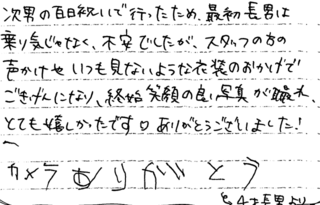 次男の百日祝いで行ったため、最初長男は
乗り気じゃなく、不安でしたが、スタッフの方の
声かけや いつも見ないような衣装のおかげで
ごきげんになり、終始笑顔の良い写真が撮れ、
とても嬉しかったです♡ ありがとうございました!
カメラ ありがとう
4才長男より